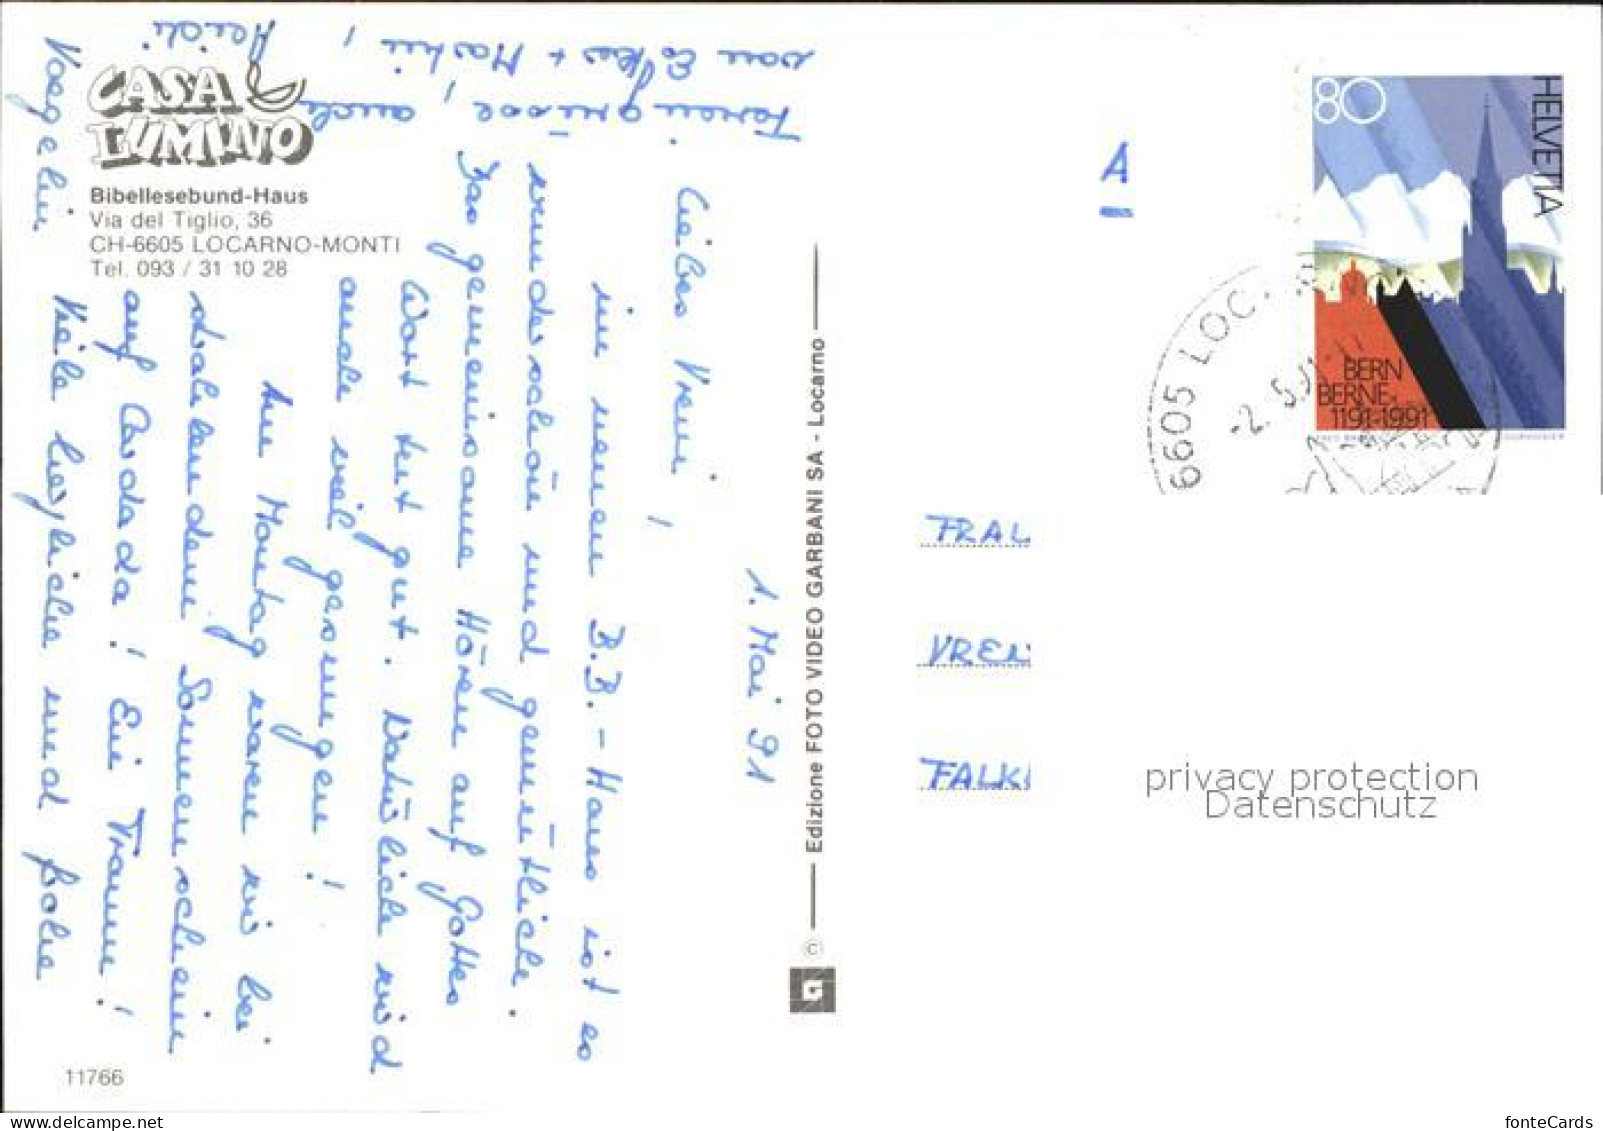 CASA
LUMINO
Bibellesebund-Haus
Via del Tiglio, 36
CH-6605 LOCARNO-MONTI
Tel. 093 / 31 10 28
1. Mai 91
Liebes Vreni,
im neuen B.B.-Haus ist es
wunderschön und gemütlich.
Das gemeinsame Hören auf Gottes
Wort tut gut. Natürlich wird
auch viel gesungen!
Am Montag waren wir bei
strahlendem Sonnenschein
auf Cardada! Ein Traum!
Viele herzliche und frohe
Feriengrüsse, auch
von
Heidi
11766
Edizione FOTO VIDEO GARBANI SA - Locarno
©
G
A
80
HELVETIA
BERN
BERNE
1191-1991
6605 LOC
-2. 5. 91
FRAU
VRENI
FALK
privacy protection
Datenschutz
fonteCards